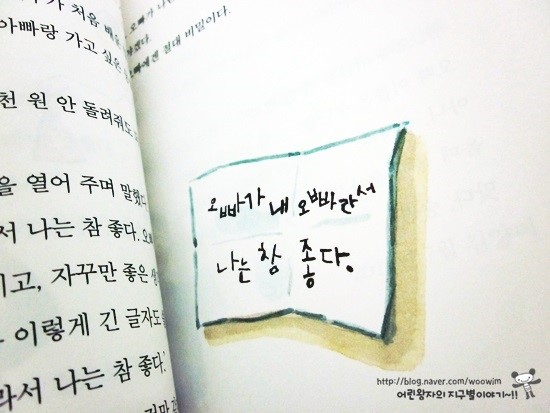 가 처음 배
아빠랑 가고 싶은
천 원 안 돌려줘도
을 열어 주며 말했다
서 나는 참 좋다. 오
리고, 자꾸만 좋은 생
이렇게 긴 글자도
라서 나는 참 좋다.
오빠가 나
절대 비밀이다.
오빠가 내 오빠라서
나는 참 좋다.
http://blog.naver.com/woowim
어린왕자의 지구별이야기~!!